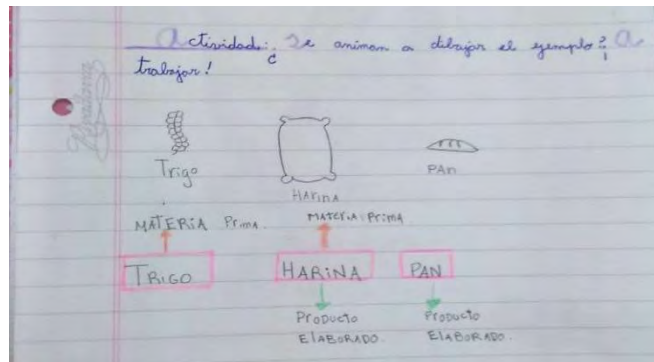 Actividad: ¿Se animan a dibujar el ejemplo? ¡A
trabajar!
Trigo
HArinA
PAn
MATERiA Prima.
MATEriA PriMA
TRIGO
HARINA
PAN
Producto
ELABORADO.
Producto
ELABORADO.